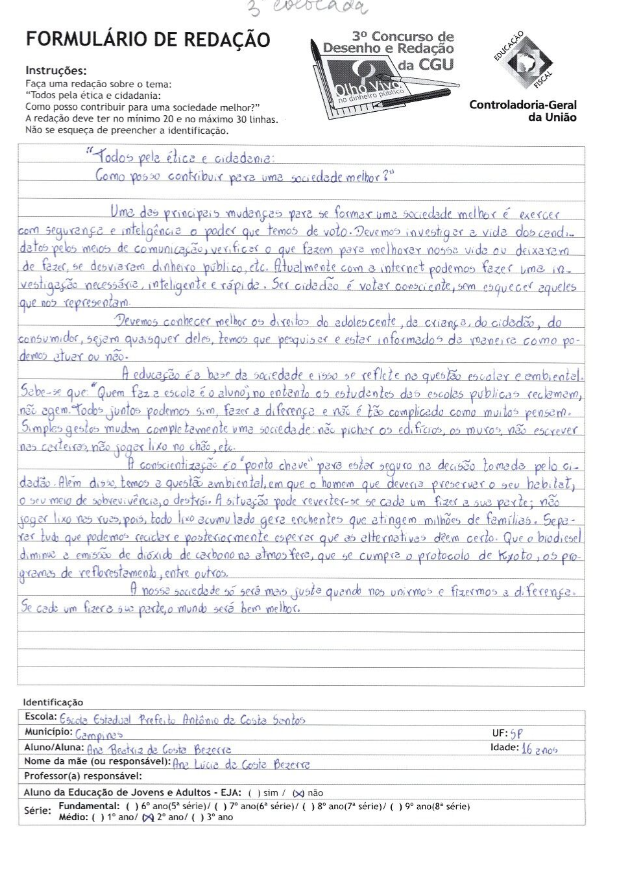 3ª colocada
FORMULÁRIO DE REDAÇÃO
3º Concurso de
Desenho e Redação
da CGU
Olho Vivo
no dinheiro público
EDUCAÇÃO
FISCAL
Controladoria-Geral
da União
Instruções:
Faça uma redação sobre o tema:
"Todos pela ética e cidadania:
Como posso contribuir para uma sociedade melhor?"
A redação deve ter no mínimo 20 e no máximo 30 linhas.
Não se esqueça de preencher a identificação.
"Todos pela ética e cidadania:
Como posso contribuir para uma sociedade melhor?"
Uma das principais mudanças para se formar uma sociedade melhor é exercer
com segurança e inteligência o poder que temos de voto. Devemos investigar a vida dos candi-
datos pelos meios de comunicação, verificar o que fazem para melhorar nossa vida ou deixaram
de fazer, se desviaram dinheiro público, etc. Atualmente com a internet podemos fazer uma in-
vestigação necessária, inteligente e rápida. Ser cidadão é votar consciente, sem esquecer aqueles
que nos representam.
Devemos conhecer melhor os direitos do adolescente, da criança, do cidadão, do
consumidor, sejam quaisquer deles, temos que pesquisar e estar informados da maneira como po-
demos atuar ou não.
A educação é a base da sociedade e isso se reflete na questão escolar e ambiental.
Sabe-se que "Quem faz a escola é o aluno", no entanto os estudantes das escolas públicas reclamam,
não agem. Todos juntos podemos sim, fazer a diferença e não é tão complicado como muitos pensam.
Simples gestos mudam completamente uma sociedade: não pichar os edifícios, os muros, não escrever
nas carteiras, não jogar lixo no chão, etc.
A conscientização é o "ponto chave" para estar seguro na decisão tomada pelo ci-
dadão. Além disso, temos a questão ambiental, em que o homem que deveria preservar o seu habitat,
o seu meio de sobrevivência, o destrói. A situação pode reverter-se se cada um fizer a sua parte; não
jogar lixo nas ruas, pois, todo lixo acumulado gera enchentes que atingem milhões de famílias. Sepa-
rar tudo que podemos reciclar e posteriormente esperar que as alternativas dêem certo. Que o biodiesel
diminua a emissão de dióxido de carbono na atmosfera, que se cumpra o protocolo de Kyoto, os pro-
gramas de reflorestamento, entre outros.
A nossa sociedade só será mais justa quando nos unirmos e fizermos a diferença.
Se cada um fizer a sua parte, o mundo será bem melhor.
Identificação
Escola: Escola Estadual Prefeito Antônio da Costa Santos
Município: Campinas UF: SP
Aluno/Aluna: Ana Beatriz da Costa Bezerra Idade: 16 anos
Nome da mãe (ou responsável): Ana Lúcia da Costa Bezerra
Professor(a) responsável:
Aluno da Educação de Jovens e Adultos - EJA: ( ) sim / (X) não
Série: Fundamental: ( ) 6º ano(5ª série)/ ( ) 7º ano(6ª série)/ ( ) 8º ano(7ª série)/ ( ) 9º ano(8ª série)
Médio: ( ) 1º ano/ (X) 2º ano/ ( ) 3º ano